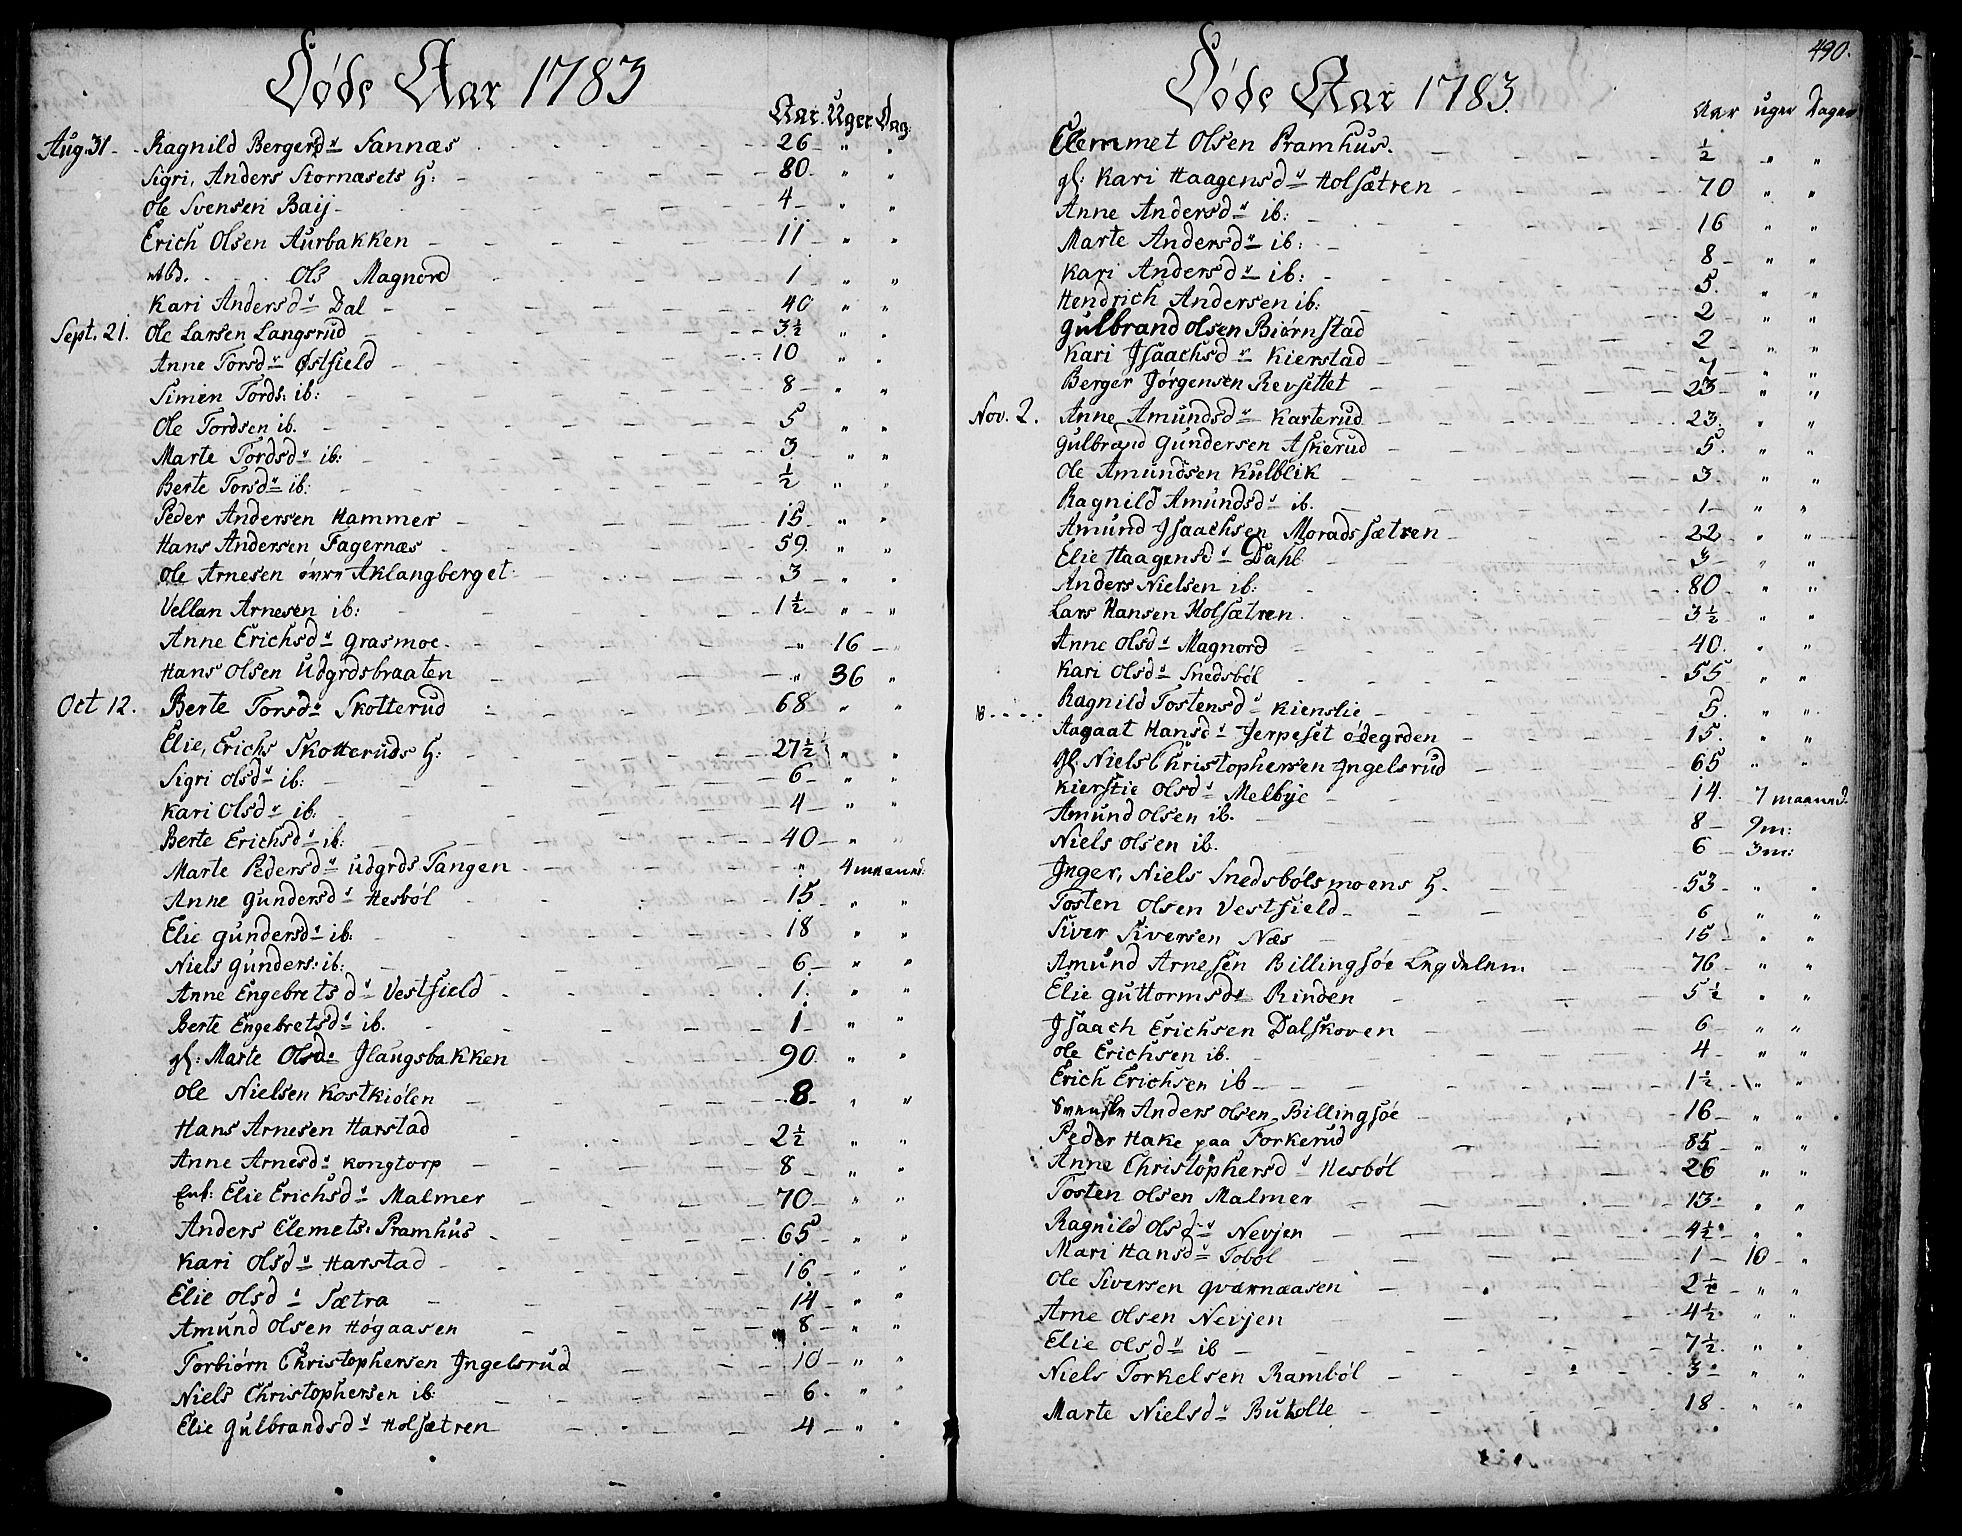 Døde Aar 1783
Aar. Uger. Dag:
Aug. 31 Ragnild Bergersdr Sannæs 26 " "
Sigri, Anders Stornæsets H: 80 " "
Ole Svensen Baij 4 " "
Erich Olsen Aurbakken 11 " "
Ols Magnord 1 " "
Kari Andersdr Dal 40 " "
Sept. 21. Ole Larsen Langsrud 3½ " "
Anne Torsdr Østfield 10 " "
Simen Tords: ib: 8 " "
Ole Tordsen ib. 5 " "
Marte Tordsdr ib: 3 " "
Berte Torsdr ib: ½ " "
Peder Andersen Hammer 15 " "
Hans Andersen Fagernæs 59. " "
Ole Arnesen øvre Aklangberget 3 " "
Vellan Arnesen ib: 1½ " "
Anne Erichsdr Grasmoe " 16 "
Hans Olsen Udgrdsbraaten " 36 "
Oct 12. Berte Torsdr Skotterud 68 " "
Elie, Erichs Skotteruds H: 27½ " "
Sigri Olsdr ib: 6 " "
Kari Olsdr ib: 4 " "
Berte Erichsdr ib: 40 " "
Marte Pedersdr Udgrds Tangen " 4 maaned:
Anne Gundersdr Hesbøl 15 " "
Elie Gundersdr ib: 18 " "
Niels Gunders: ib: 6 " "
Anne Engebretsdr Vestfield 1. " "
Berte Engebretsdr ib. 1 " "
gl: Marte Olsdr Jlaugsbakken 90. " "
Ole Nielsen Kostkiølen 8 " "
Hans Arnesen Harstad 2½ " "
Anne Arnesdr Kongtorp 8 " "
Enk: Elie Erichsdr Malmer 70 " "
Anders Clemets: Pramhus 65 " "
Kari Olsdr Harstad 16 " "
Elie Olsdr Sætra 14 " "
Amund Olsen Høgaasen 8 " "
Torbiørn Christophersen Jngelsrud 10 " "
Niels Christophersen ib: 6. " "
Elie Gulbrandsdr Holsætren 4 " "
490.
Døde Aar 1783.
Aar uger Dager
Clemmet Olsen Pramhus. ½ " "
gl: Kari Haagensdr Holsætren 70 " "
Anne Andersdr ib: 16 " "
Marte Andersdr ib: 8 " "
Kari Andersdr ib: 5. " "
Hendrich Andersen ib: 2 " "
Gulbrand Olsen Biørnstad 2 " "
Kari Jsaachsdr Kierstad 7 " "
Berger Jørgensen Revsettet 23 " "
Nov. 2. Anne Amundsdr Karterud 23. " "
Gulbrand Gundersen Askerud 5. " "
Ole Amundsen Kulblik 3. " "
Ragnild Amundsdr ib. 1 " "
Amund Jsaachsen Moradssætren 22 " "
Elie Haagensdr Dahl 3 " "
Anders Nielsen ib: 80 " "
Lars Hansen Holsætren. 3½ " "
Anne Olsdr Magnord 40. " "
Kari Olsdr Snedsbøl 55 " "
Ragnild Tostensdr Kienslie 5. " "
Aagaat Hansdr Jerpeset ødegrden 15. " "
gl. Niels Christophersen Jngelsrud 65 " "
Kierstie Olsdr Melbye 14. 7 maaned
Amund Olsen ib. 8 9m:
Niels Olsen ib. 6 3m:
Jnger, Niels Snedsbølsmoens H. 53 " "
Tosten Olsen Vestfield 6 " "
Siver Siversen Næs 15 " "
Amund Arnesen Billingsøe 76 " "
Elie Guttormsdr Rinden 5½ " "
Jsaach Erichsen Dalskoven 6 " "
Ole Erichsen ib. 4 " "
Erich Erichsen ib 1½ " "
Svenske Anders Olsen Billingsøe 16 " "
Peder Hake paa Torkerud 85 " "
Anne Christophersdr Hesbøl 26 " "
Tosten Olsen Malmer 13 " "
Ragnild Olsdr Nevjen 4½ " "
Mari Hansdr Tobøl 1 10 "
Ole Siversen Qværnaasen 2½ " "
Arne Olsen Nevjen 4½ " "
Elie Olsdr ib 7½ " "
Niels Torkelsen Rambøl 3 " "
Marte Nielsdr Buholte 18 " "